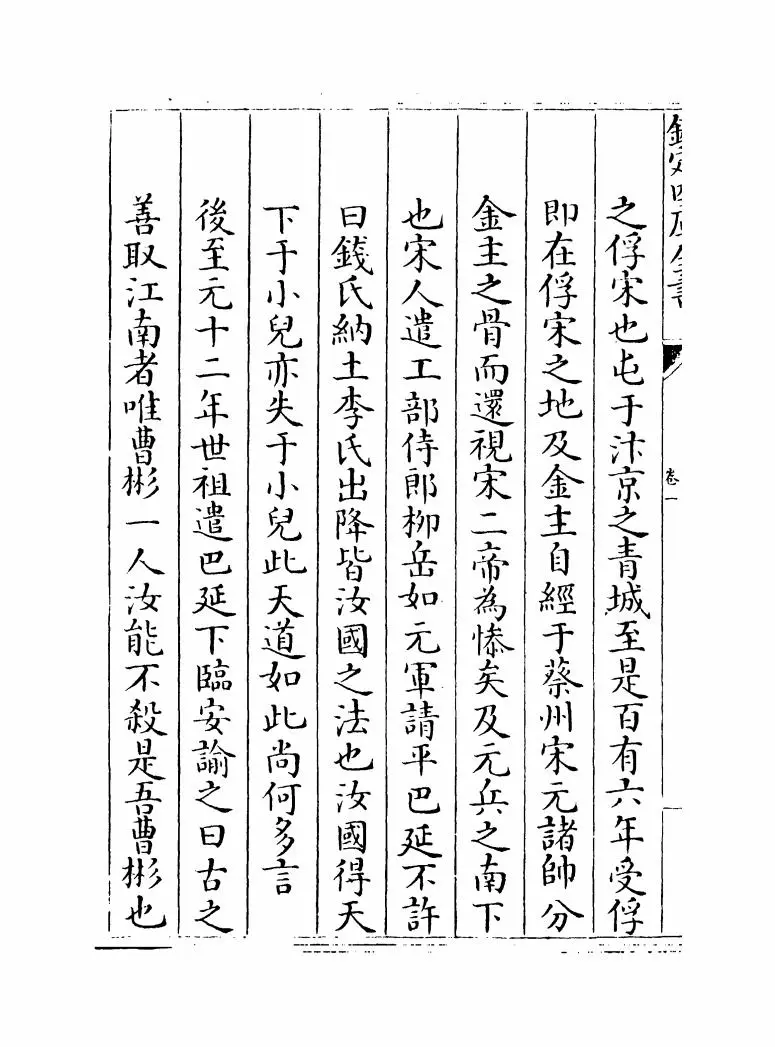 欽定四庫全書
卷一
之俘宋也屯于汴京之青城至是百有六年受俘
即在俘宋之地及金主自經于蔡州宋元諸帥分
金主之骨而還視宋二帝為慘矣及元兵之南下
也宋人遣工部侍郎柳岳如元軍請平巴延不許
曰錢氏納土李氏出降皆汝國之法也汝國得天
下于小兒亦失于小兒此天道如此尚何多言
後至元十二年世祖遣巴延下臨安諭之曰古之
善取江南者唯曹彬一人汝能不殺是吾曹彬也